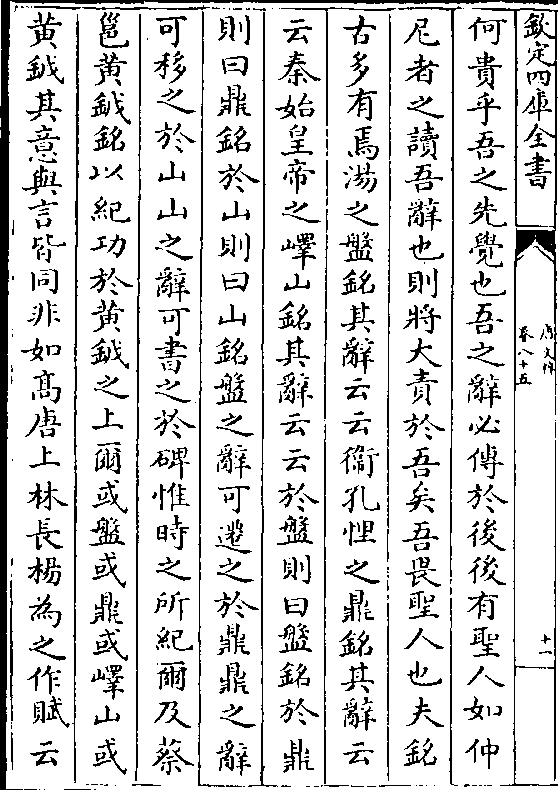 欽定四庫全書
唐文粹
卷八十五
十一
何貴乎吾之先覺也吾之辭必傳於後後有聖人如仲
尼者之讀吾辭也則將大責於吾矣吾畏聖人也夫銘
古多有焉湯之盤銘其辭云云衞孔悝之鼎銘其辭云
云秦始皇帝之嶧山銘其辭云云於盤則曰盤銘於鼎
則曰鼎銘於山則曰山銘盤之辭可遷之於鼎鼎之辭
可移之於山山之辭可書之於碑惟時之所紀爾及蔡
邕黄鉞銘以紀功於黄鉞之上爾或盤或鼎或嶧山或
黄鉞其意與言皆同非如高唐上林長楊為之作賦云